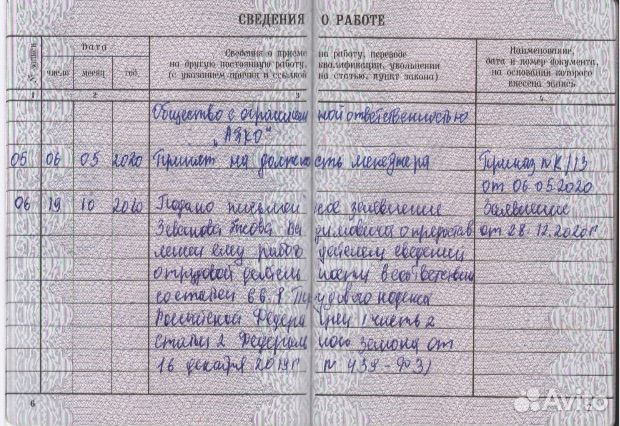 СВЕДЕНИЯ О РАБОТЕ
№ записи
Дата
число месяц год
Сведения о приеме на работу, переводе
на другую постоянную работу, квалификации, увольнении
(с указанием причин и ссылкой на статью, пункт закона)
Наименование,
дата и номер документа,
на основании которого
внесена запись
1 2 3 4
Общество с ограниченной ответственностью
"АЯКО"
05 06 05 2020 Принят на должность менеджера Приказ №К/13
от 06.05.2020
06 19 10 2020 Подано письменное заявление Заявление
о предостав от 28.12.2020г
ления ему работодателем сведений
о трудовой деятельности в соответствии
со статьей 66.1 Трудового кодекса
Российской Федерации, 1 часть 2
статьи 2 Федерального закона от
16 декабря 2019г. №439-ФЗ)
6
Avito